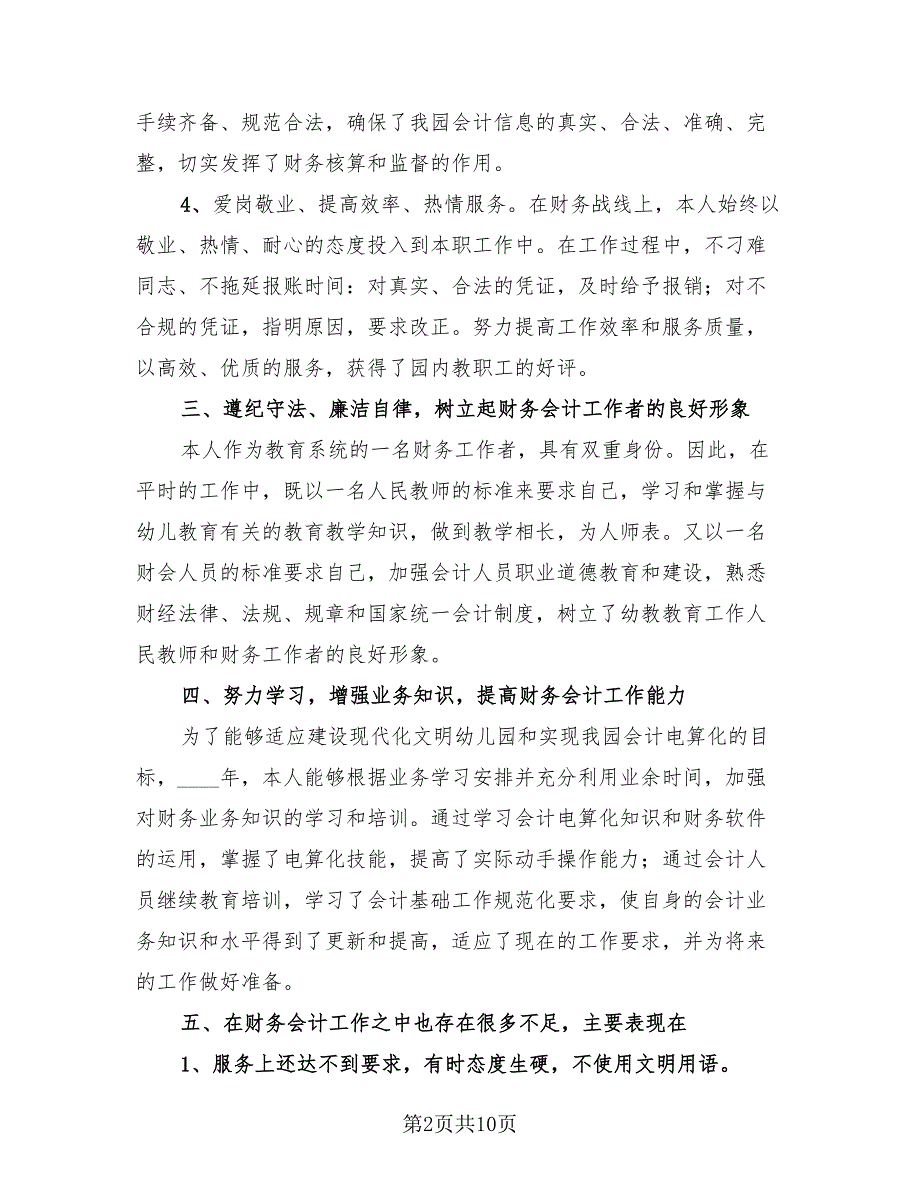 手续齐备、规范合法，确保了我园会计信息的真实、合法、准确、完
整，切实发挥了财务核算和监督的作用。
4、爱岗敬业、提高效率、热情服务。在财务战线上，本人始终以
敬业、热情、耐心的态度投入到本职工作中。在工作过程中，不刁难
同志、不拖延报账时间：对真实、合法的凭证，及时给予报销；对不
合规的凭证，指明原因，要求改正。努力提高工作效率和服务质量，
以高效、优质的服务，获得了园内教职工的好评。
三、遵纪守法、廉洁自律，树立起财务会计工作者的良好形象
本人作为教育系统的一名财务工作者，具有双重身份。因此，在
平时的工作中，既以一名人民教师的标准来要求自己，学习和掌握与
幼儿教育有关的教育教学知识，做到教学相长，为人师表。又以一名
财会人员的标准要求自己，加强会计人员职业道德教育和建设，熟悉
财经法律、法规、规章和国家统一会计制度，树立了幼教教育工作人
民教师和财务工作者的良好形象。
四、努力学习，增强业务知识，提高财务会计工作能力
为了能够适应建设现代化文明幼儿园和实现我园会计电算化的目
标，____年，本人能够根据业务学习安排并充分利用业余时间，加强
对财务业务知识的学习和培训。通过学习会计电算化知识和财务软件
的运用，掌握了电算化技能，提高了实际动手操作能力；通过会计人
员继续教育培训，学习了会计基础工作规范化要求，使自身的会计业
务知识和水平得到了更新和提高，适应了现在的工作要求，并为将来
的工作做好准备。
五、在财务会计工作之中也存在很多不足，主要表现在
1、服务上还达不到要求，有时态度生硬，不使用文明用语。
第2页共10页